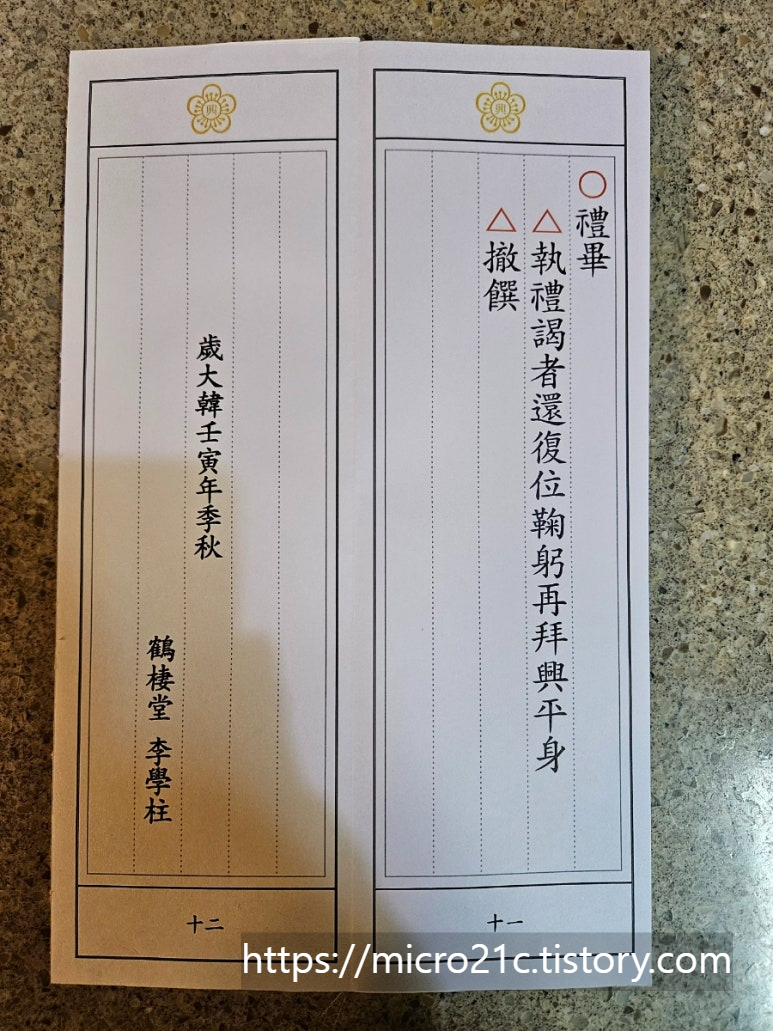 興
○禮畢
△執禮謁者還復位鞠躬再拜興平身
△撤饌
十一
興
歲大韓壬寅年季秋
鶴棲堂 李學柱
十二
https://micro21c.tistory.com